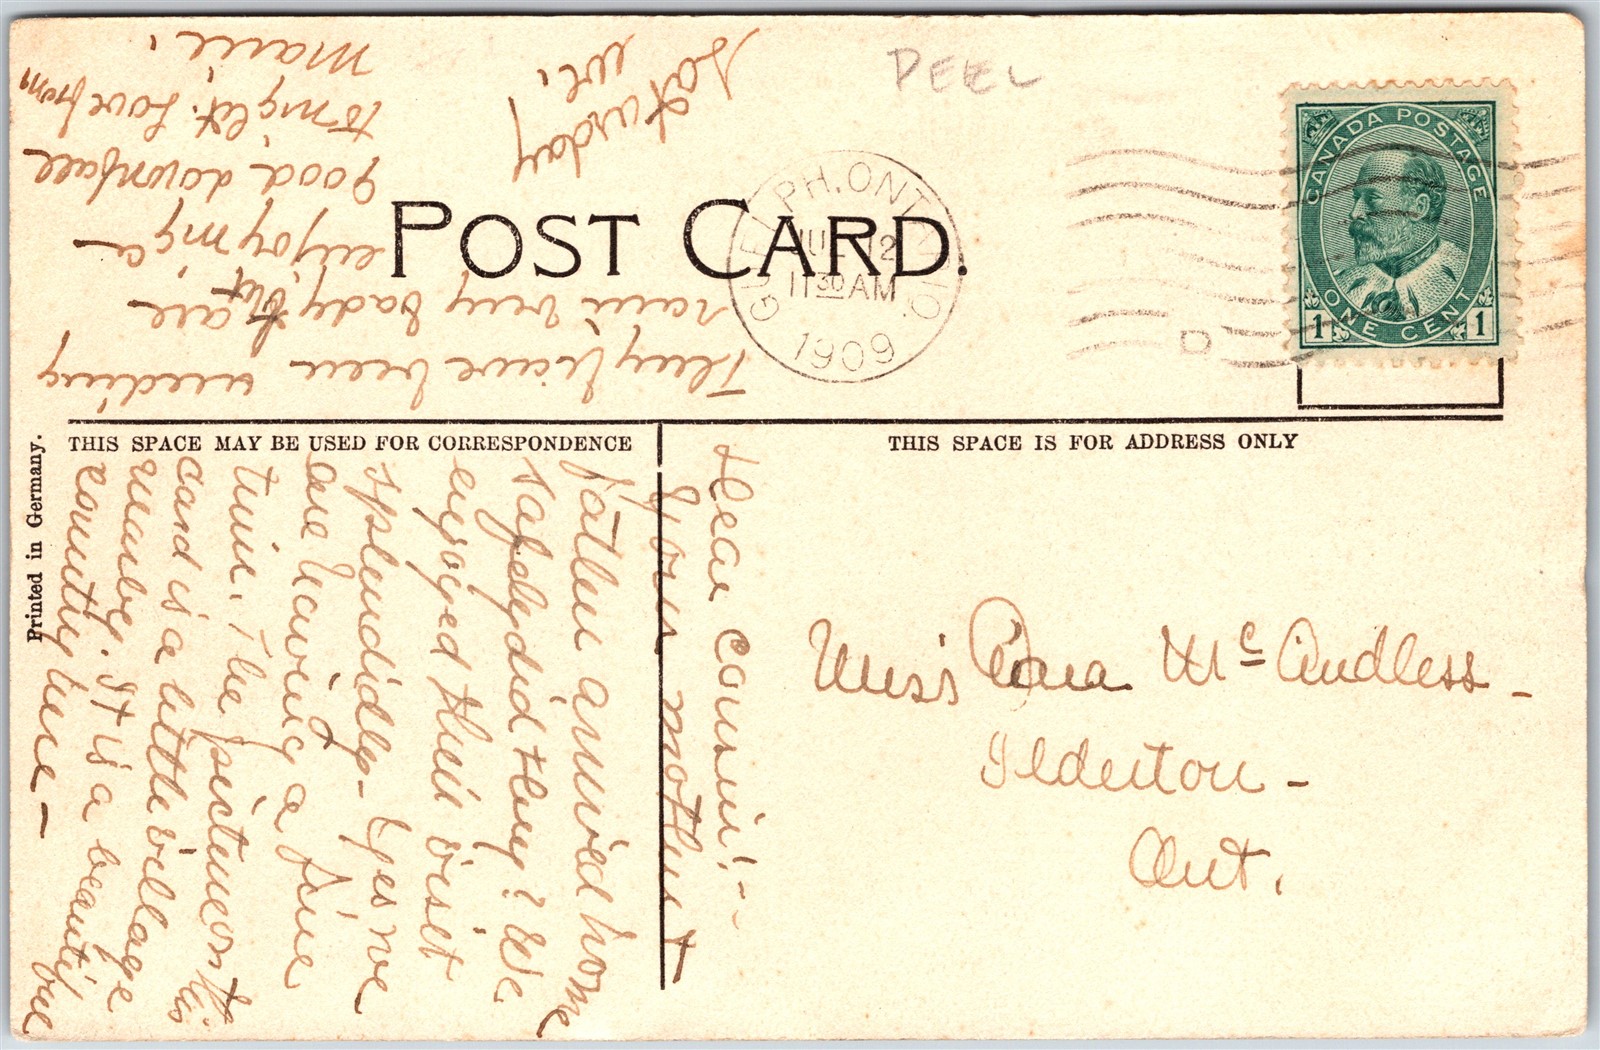 PEEL
POST CARD.
GUELPH, ONTARIO.
JUL 12
11 30 AM
1909
CANADA POSTAGE
ONE CENT
1 1
THIS SPACE MAY BE USED FOR CORRESPONDENCE
THIS SPACE IS FOR ADDRESS ONLY
Printed in Germany.
Miss Ora McCandless -
Ilderton -
Ont.
Dear Cousin! --
Your mother &
father arrived home
safely did they? We
enjoyed their visit
splendidly - Yes we
are having a fine
time. The picture on this
card is a little village
near by. It is a beautiful
country here -
They have been needing
rain very badly but are
enjoying a
good downfall
to night. Love from
Marie.
Saturday
eve.